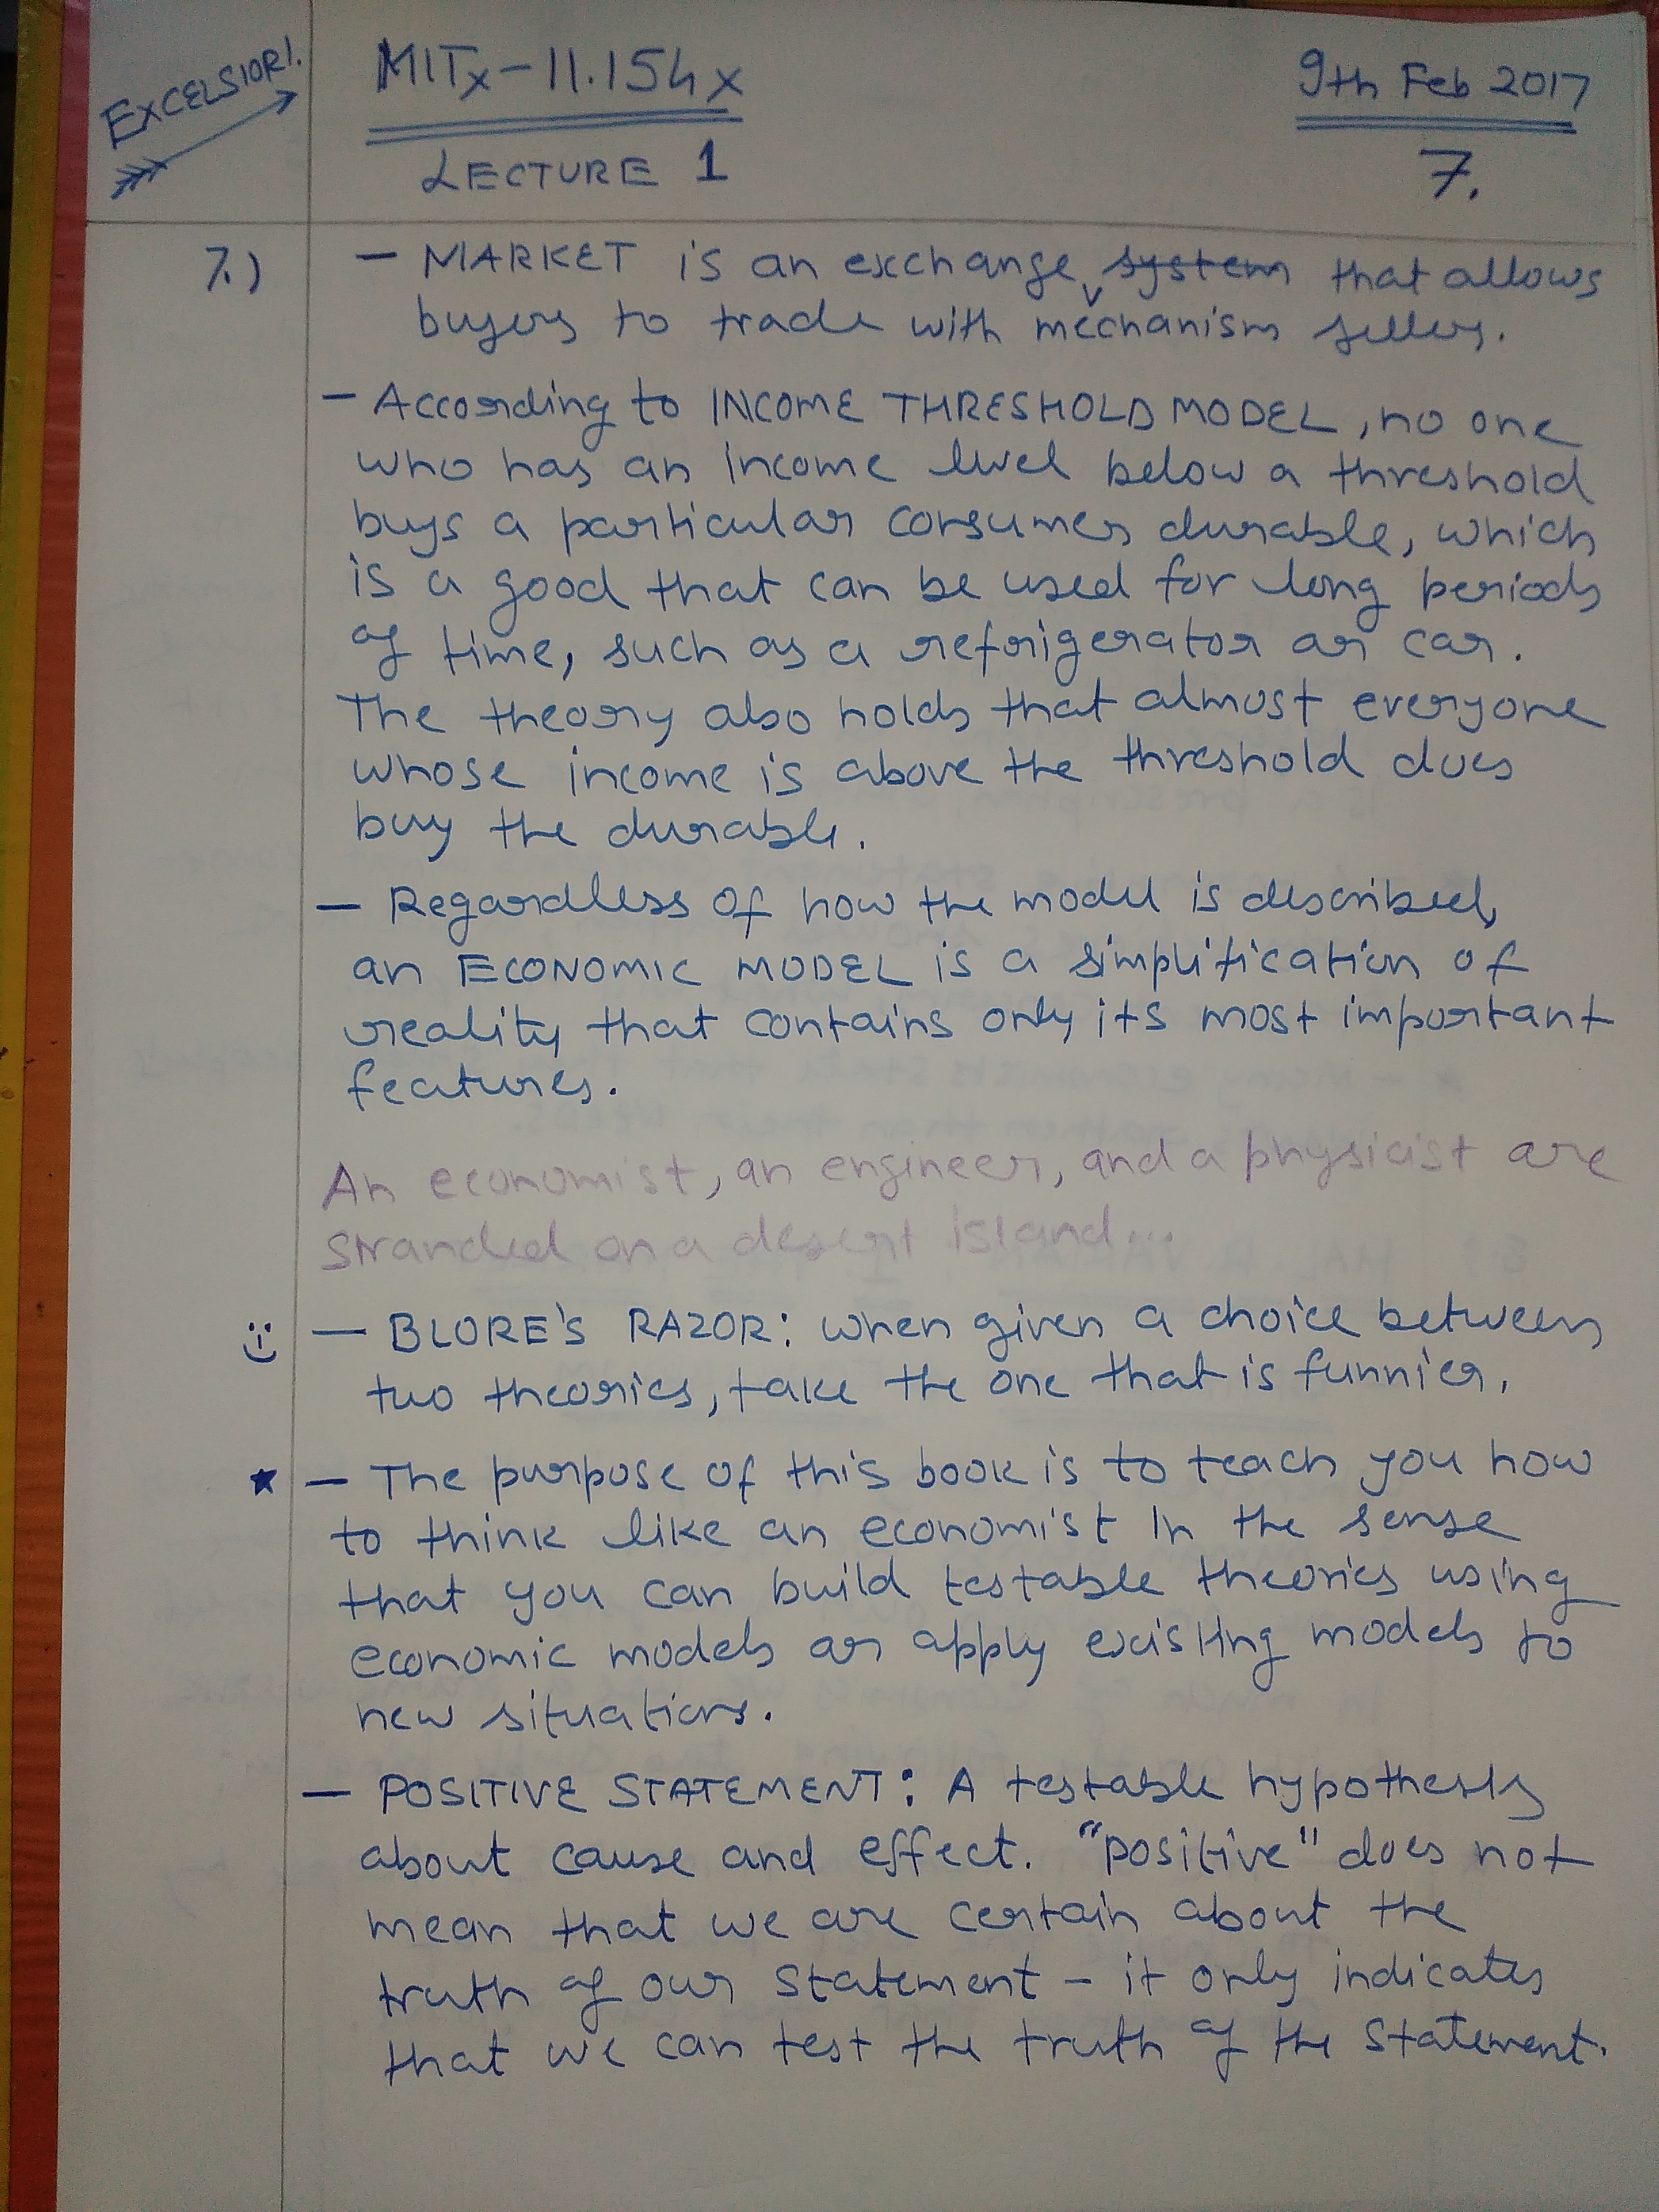 EXCELSIOR!
MITx-11.154x
9th Feb 2017
LECTURE 1
7.
7.)
- MARKET is an exchange system that allows
buyers to trade with mechanism sellers.
- According to INCOME THRESHOLD MODEL, no one
who has an income level below a threshold
buys a particular consumer durable, which
is a good that can be used for long periods
of time, such as a refrigerator or car.
The theory also holds that almost everyone
whose income is above the threshold does
buy the durable.
- Regardless of how the model is described,
an ECONOMIC MODEL is a simplification of
reality that contains only its most important
features.
An economist, an engineer, and a physicist are
stranded on a desert island...
- BLORE'S RAZOR: when given a choice between
two theories, take the one that is funnier.
- The purpose of this book is to teach you how
to think like an economist in the sense
that you can build testable theories using
economic models or apply existing models to
new situations.
- POSITIVE STATEMENT: A testable hypothesis
about cause and effect. "positive" does not
mean that we are certain about the
truth of our statement - it only indicates
that we can test the truth of the statement.